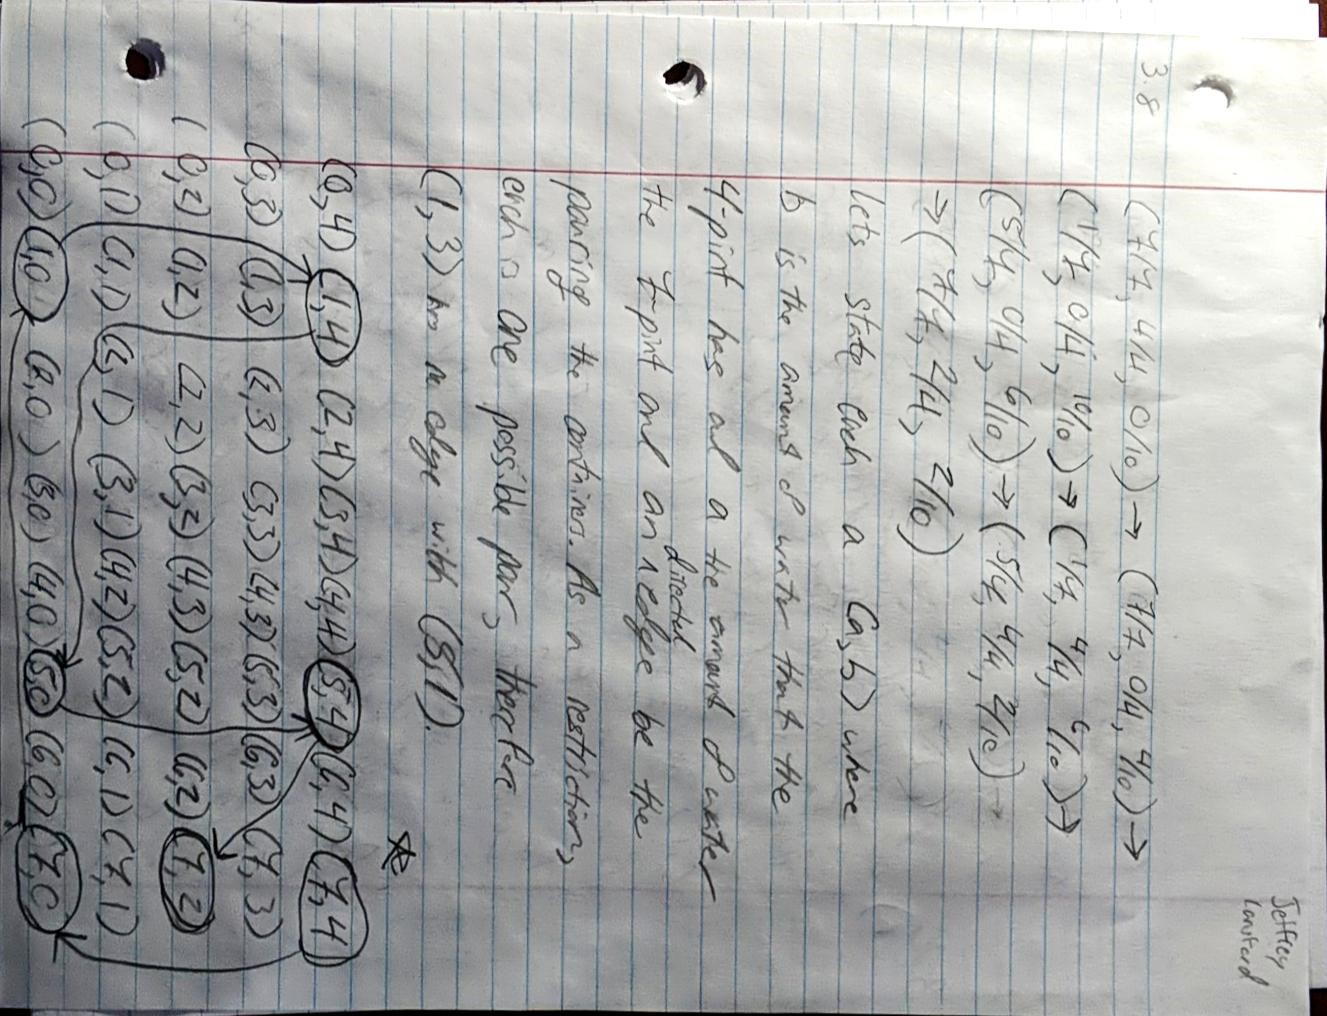 Jeffrey
Lansford
3.8
(7/7, 4/4, 0/10) → (7/7, 0/4, 4/10) →
(1/7, 0/4, 10/10) → (1/7, 4/4, 6/10) →
(5/7, 0/4, 6/10) → (5/7, 4/4, 2/10) →
→ (7/7, 2/4, 2/10)
lets state each a (a,b) where
b is the amount of water that the
4-pint has and a the amount of water
the 7-pint and an directed edge be the
pouring the contniers. As a restriction,
each is one possible pour, therfore
(1,3) has no edge with (5,1).
(0,4) (1,4) (2,4) (3,4) (4,4) (5,4) (6,4) (7,4)
(0,3) (1,3) (2,3) (3,3) (4,3) (5,3) (6,3) (7,3)
(0,2) (1,2) (2,2) (3,2) (4,3) (5,2) (6,2) (7,2)
(0,1) (1,1) (2,1) (3,1) (4,2) (5,2) (6,1) (7,1)
(0,0) (1,0) (2,0) (3,0) (4,0) (5,0) (6,0) (7,0)